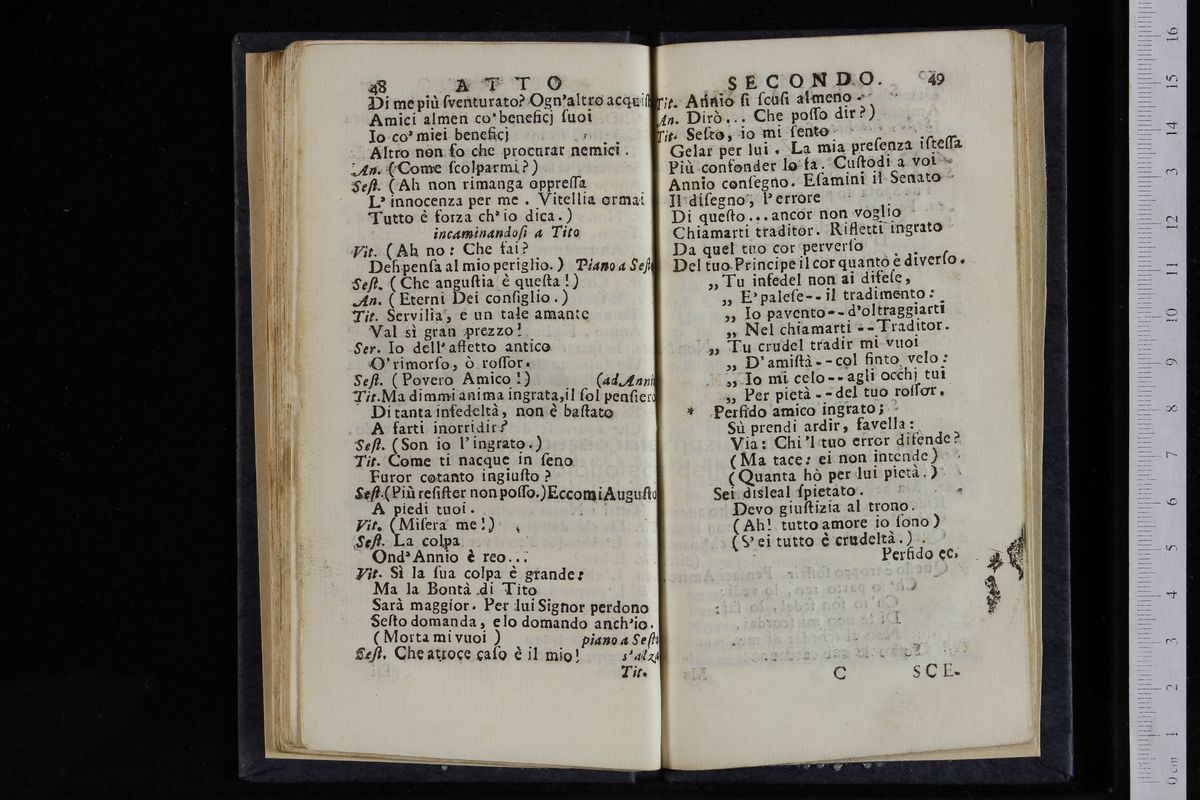 48 ATTO
Di me più ſventurato? Ogn'altro acquiſt
Amici almen co' beneficj ſuoi
Io co' miei beneficj
Altro non fo che procurar nemici.
An. (Come ſcolparmi?)
Seſt. (Ah non rimanga oppreſſa
L'innocenza per me. Vitellia ormai
Tutto è forza ch'io dica.)
incaminandoſi a Tito
Vit. (Ah no: Che fai?
Deh penſa al mio periglio.) Piano a Seſt
Seſt. (Che anguſtia è queſta!)
An. (Eterni Dei conſiglio.)
Tit. Servilia, e un tale amante
Val sì gran prezzo!
Ser. Io dell'affetto antico
O' rimorſo, ò roſſor.
Seſt. (Povero Amico!) (ad Anni
Tit. Ma dimmi anima ingrata, il ſol penſiero
Di tanta infedeltà, non è baſtato
A farti inorridir?
Seſt. (Son io l'ingrato.)
Tit. Come ti nacque in ſeno
Furor cotanto ingiuſto?
Seſt. (Più reſiſter non poſſo.) Eccomi Auguſto
A piedi tuoi.
Vit. (Miſera me!)
Seſt. La colpa
Ond'Annio è reo...
Vit. Sì la ſua colpa è grande:
Ma la Bontà di Tito
Sarà maggior. Per lui Signor perdono
Seſto domanda, e lo domando anch'io.
(Morta mi vuoi) piano a Seſt
Seſt. Che atroce caſo è il mio! s'alza
Tit.
SECONDO. 49
Tit. Annio ſi ſcuſi almeno.
An. Dirò... Che poſſo dir?)
Tit. Seſto, io mi ſento
Gelar per lui. La mia preſenza iſteſſa
Più confonder lo fa. Cuſtodi a voi
Annio conſegno. Eſamini il Senato
Il diſegno, l'errore
Di queſto... ancor non voglio
Chiamarti traditor. Rifletti ingrato
Da quel tuo cor perverſo
Del tuo Principe il cor quanto è diverſo.
„ Tu infedel non ai difeſe,
„ E' paleſe -- il tradimento:
„ Io pavento -- d'oltraggiarti
„ Nel chiamarti -- Traditor.
„ Tu crudel tradir mi vuoi
„ D'amiſtà -- col finto velo:
„ Io mi celo -- agli occhj tui
„ Per pietà -- del tuo roſſor.
* Perfido amico ingrato;
Sù prendi ardir, favella:
Via: Chi'l tuo error difende?
(Ma tace: ei non intende)
(Quanta hò per lui pietà.)
Sei disleal ſpietato.
Devo giuſtizia al trono.
(Ah! tutto amore io ſono)
(S'ei tutto è crudeltà.)
Perfido ec.
C SCE-